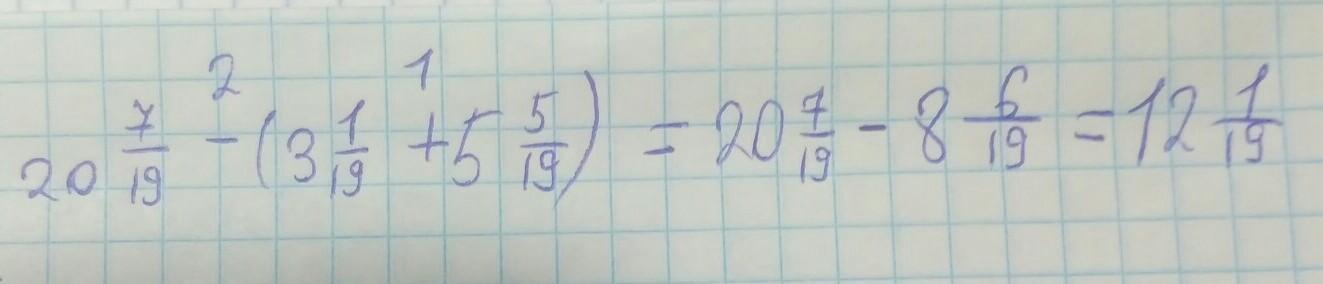 2 1
20 7/19 - (3 1/19 + 5 5/19) = 20 7/19 - 8 6/19 = 12 1/19